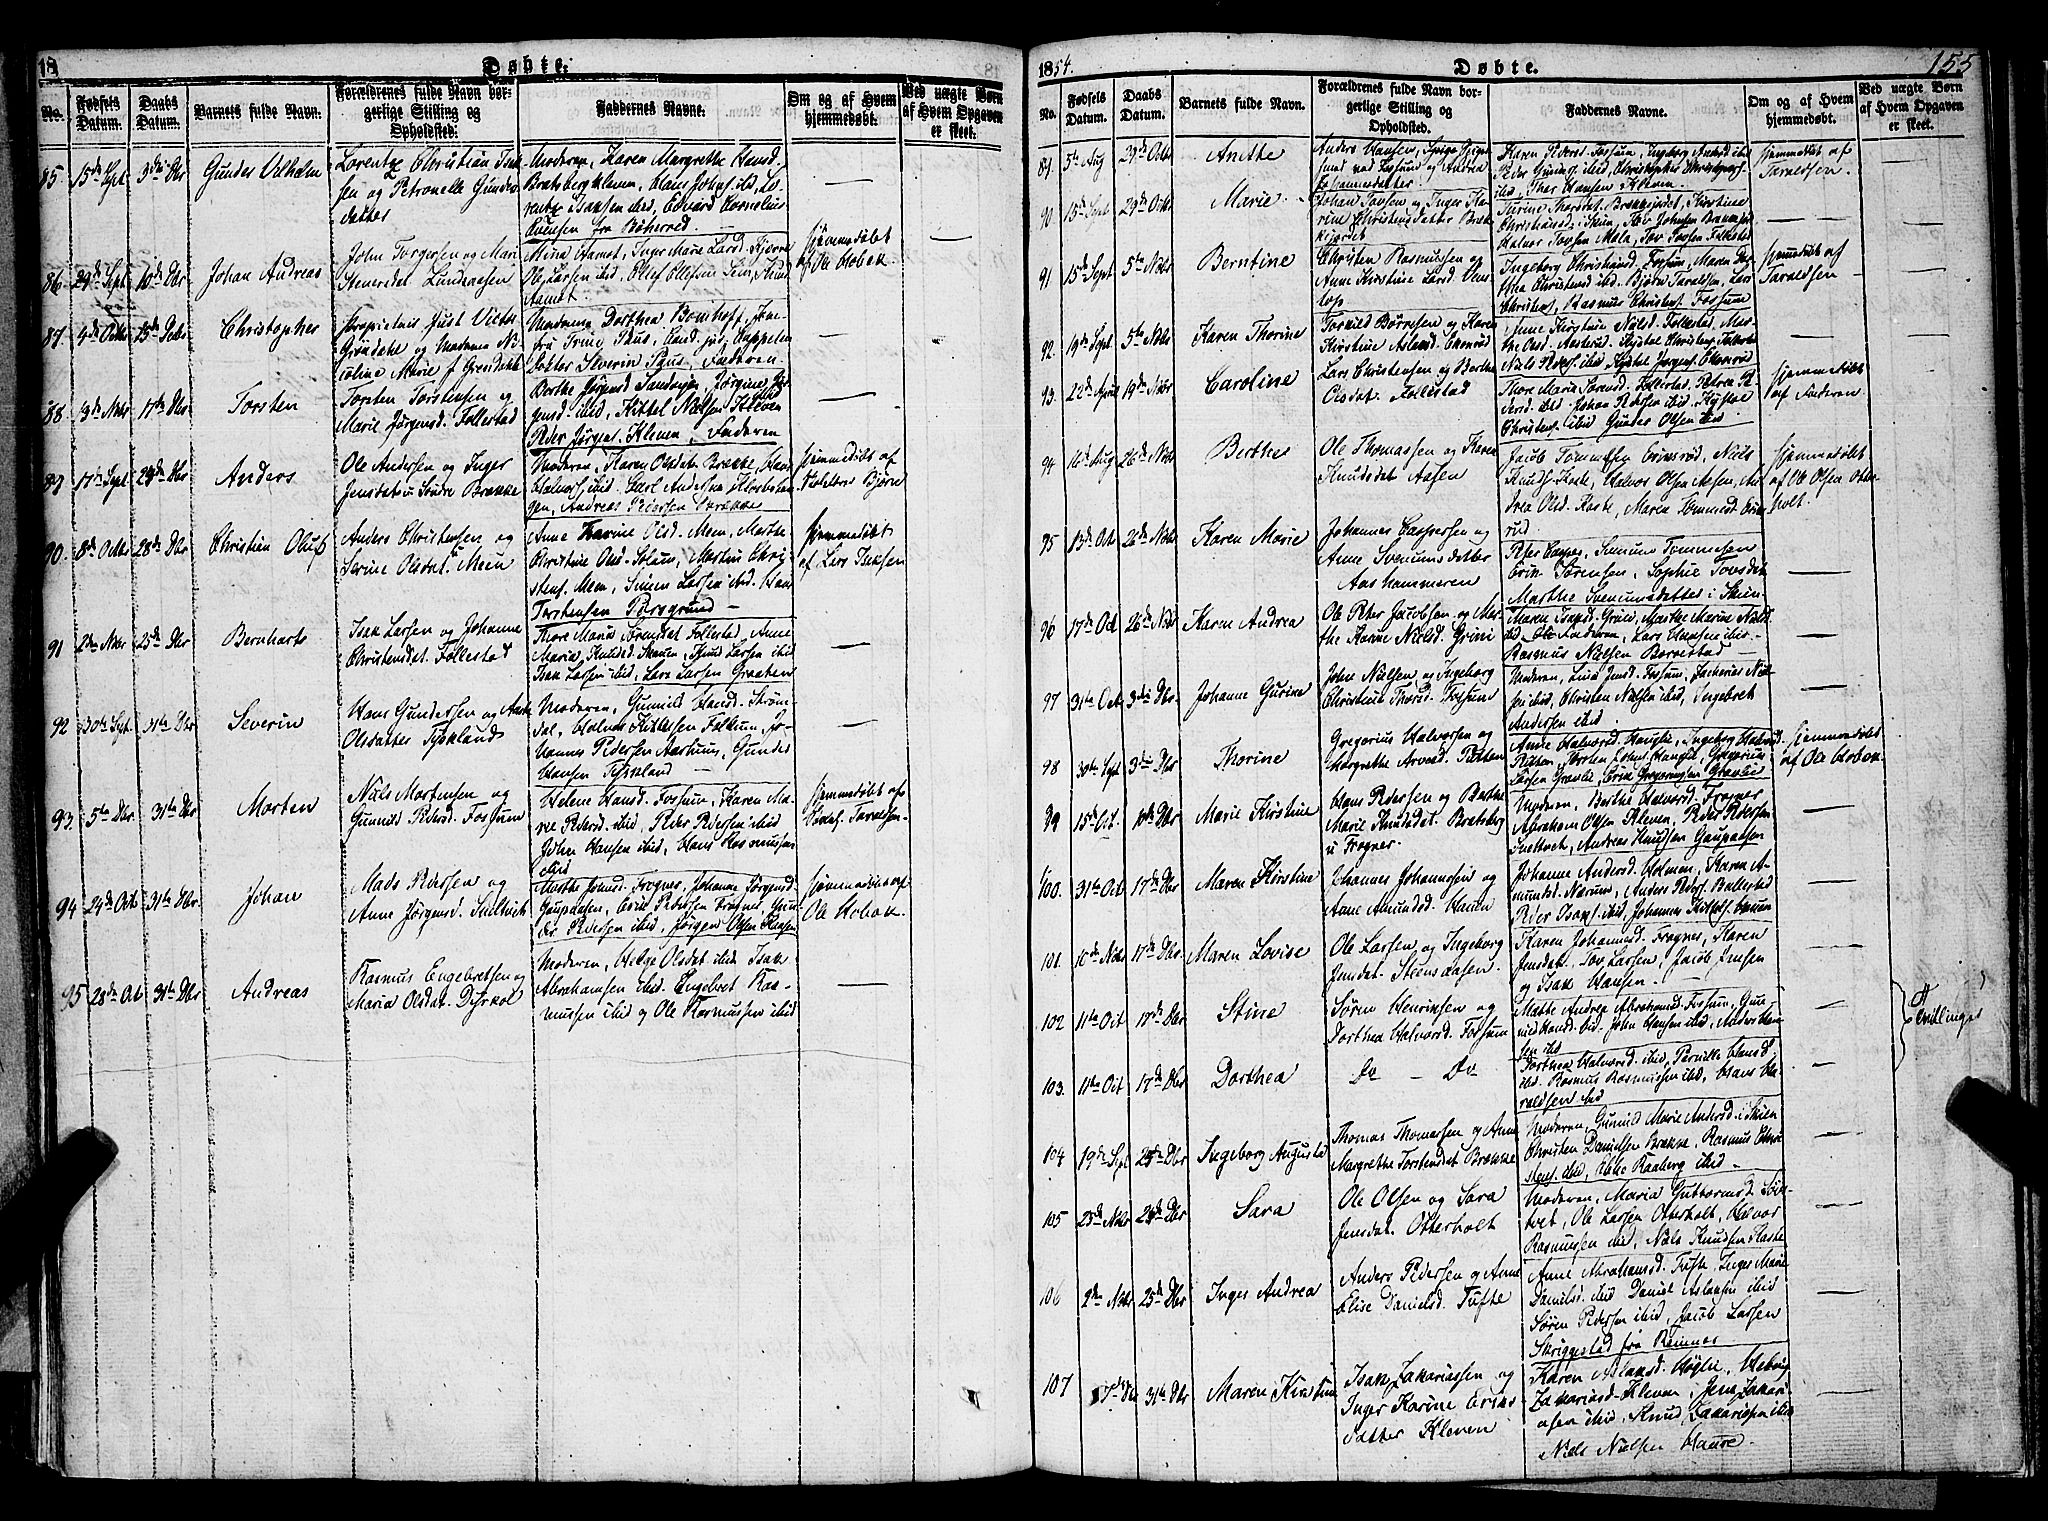 18
Døbte.
No.
Fødsels Datum.
Daabs Datum.
Barnets fulde Navn.
Forældrenes fulde Navn borgerlige Stilling og Opholdsted.
Faddernes Navne.
Om og af Hvem hjemmedøbt.
Ved uægte Børn af Hvem Opgaven er skeet.
85 15de Sept 3die Dbr Gunder Vilhelm
Lorentz Christian Isak-
sen og Petronelle Gunders-
datter
Moderen, Karen Margrethe Hansd.
Bratsbergkleven, Hans Johns. ibid, Lo-
rentz Isaksen ibid, Edvard Cornelius
Evensen fra Böhererd
—
86 29de Sept 10de Dbr Johan Andreas
John Torgersen og Mari
Stenersdt Lundeaasen
Mina Aamot, Inger Marie Larsd. Kjerre
Ole Larsen ibid, Olef Olsen
Aamot
hjemmedöbt
af Ole Hobæk
—
87 4de Octbr Christopher
Proprietair Just Victor
Gröndahl og Moderen Ni-
coline Marie f. Gröndahl
Dorthea Bomhoff,
Irine Paus, Cand. jur. Cappelen
Doktor Severin Paus, Faderen
—
88 13de Nvbr 17de Dbr Torsten
Torsten Torstensen og
Marie Jörgensd. Follestad
Berthe Jörgensd Sandvigen, Jörgine Jör-
gensd. ibid, Kittel Nielsen Kleven
Peder Jörgens. Kleven, Faderen
—
89 17de Sept. 24de Dbr Anders
Ole Andersen og Inger
Jensdat. Söndre Brække
Moderen, Karen Olsdat. Brække, Hans
Halvors. ibid, Carl Anders.
Andreas Pedersen Brække
hjemmedöbt af
Björn
90. 8de Octbr 28de Dbr Christian Oluf
Anders Christensen og
Serine Olsdat. Meen
Anne Karine Olsd. Meen, Marthe
Christine Olsd. Solum, Morten Chri-
stens. Meen, Simen Larsen ibid. Hans
Torstensen Porsgrund —
hjemmedöbt
af Lars Isaksen
91 2den Nvbr 25de Dbr Bernhart
Isak Larsen og Johanne
Christensdat. Follestad
Thore Maria Sörensdat. Follestad, Anne
Maria Knudsd. Skauen, Knud Larsen ibid
Isak Larsen ibid, Lars Larsen Graaten
—
92 30te Sept. 31te Dbr Severin
Hans Gundersen og
Olsdatter Tyskland
Moderen, Gunnild Hansd. Ström-
dal, Halvor Kittelsen Falkum, Jo-
hannes Pedersen Aarhuus, Gunder
Hansen Tyskland —
—
93. 5te Dbr. 31te Dbr Morten
Niels Mortensen og
Gunnild Pedersd. Fossum
Helene Hansd. Fossum, Karen Ma-
rie Pedersd. ibid, Peder Pedersen ibid
John Hansen ibid, Hans Rasmussen
ibid
hjemmedöbt af
Taraldsen
94 24de Octb 31te Dbr Johan
Mads Pedersen og
Anne Jörgensd. Snellvet
Marthe Johnsd. Frogner, Johanne Jörgensd
Gaupaasen, Erik Pedersen Frogner, Gun-
der Pedersen ibid, Jörgen Olsen
hjemmedöbt af
Ole Hobæk
95 28de Oct 31te Dbr Andreas
Rasmus Engebretsen og
Maria Olsdat. Dyrkol
Moderen, Helge Olsdat ibid Isak
Abrahamsen ibid Engebret Ras-
mussen ibid og Ole Rasmussen ibid
—
1854.
Døbte.
155
No.
Fødsels Datum.
Daabs Datum.
Barnets fulde Navn.
Forældrenes fulde Navn borgerlige Stilling og Opholdsted.
Faddernes Navne.
Om og af Hvem hjemmedøbt.
Ved uægte Børn af Hvem Opgaven er skeet.
89. 5te Aug 29de Octb Anethe
Anders Hansen,
ved Fossum og Andrea
Johannesdatter
Karen Peders. Fossum, Ingeborg Andersd ibid
Peder Gunders. ibid, Christopher Christophers.
ibid, Thor Hansen Kleven.
hjemmedöbt af
Taraldsen.
—
90. 15de Sept. 29de Octb. Marie
Johan Tovsen og Inger Ka-
rine Christensdatter Bræk-
kejordet
Turine Thorsdat. Brækkejordet, Kirstine
Christiansd. i Skien, Per Johnsen
Halvor Tovsen Mæla, Tov Tovsen Follestad
—
91 15de Sept 5te Nvbr Berntine
Christen Rasmussen og
Anne Kirstine Larsd. Ven-
stöp
Ingeborg Christiansd. Fossum, Maren Do-
rthea Christensd ibid. Björn Taraldsen, Lars
Christens., Rasmus Christens. Fossum
hjemmedöbt af
Taraldsen
92. 19de Sept. 5te Nvbr Karen Thorine
Torkild Börresen og Karen
Kirstine Aslaksd. Ekornröd
Anne Kirstine Nielsd. Follestad, Mar-
the Olsd. Aasterud. Kystol Christens. Follestad
Niels Peders. ibid, Kystel Jörgens. Ekornröd
—
93. 22de April 19de Nvbr Caroline
Lars Christensen og Berthe
Olsdat. Follestad
Thore Maria Sörensd. Follestad. Maren Pe-
dersd. ibid. Johan Pedersen ibid. Kystol
Christens. ibid Gunder Olsen ibid
hjemmedöbt
af Faderen
94 16de Aug 26de Nvbr Berthe
Ole Thomassen og Karen
Knudsdat Aasen
Jacob Tommesen Eriksröd, Niels
Knuds. Kaste, Halvor Olsen Aasen, An-
drea Olsd. Kaste, Maren Tommesd Erik-
rud
hjemmedöbt
af Ole Olsen Otter-
holt
95 13de Oct 26de Nvbr Karen Marie
Johannes Caspersen og
Anne Svenumsdatter
Aashammeren
Peter Caspers. Svenum Tommesen
Erik Sörensen, Sophie Tovsdat.
Marthe Svenumsdatter i Skien
—
96 17de Oct 26de Nvbr Karen Andrea
Ole Peter Jacobsen og Mar-
the Karine Nielsd. Grini
Maren Isaksd. Grini, Marthe Marie Nielsd
ibid, Ole Faderen, Lars Hansen ibid.
Rasmus Nielsen Borrestad
—
97 31te Oct. 3die Dbr. Johanne Gurine
John Nielsen og Ingeborg
Christine Thorsd. Fossum
Moderen, Lina Jensd. Fossum, Zacharias Niel-
sen ibid, Christen Nielsen ibid, Ingebret
Andersen ibid.
—
98 30te Sept 3die Dbr Thorine
Gregorius Halvorsen og
Margrethe Arvesd. Riksen
Anne Halvorsd. Ingeborg Halvorsd.
Torsten Johns. Gregorius
Larsen Gravlie, Erik Gregoriusen Gravlie
hjemmedöbt
af Ole Hobæk
99 15de Oct. 10de Dbr Marie Kirstine
Hans Pedersen og Berthe
Marie Knudsdat. Bratsberg
u. Frogner.
Moderen, Berthe Halvorsd. Frogner
Abraham Olsen Kleven, Peder Pedersen
Snellvet, Andreas Knudsen Gaupaasen
—
100. 31te Oct 17de Dbr Maren Kirstine
Johannes Johannesen og
Anne Amundsd. Hauen
Johanne Andersd. Holmen, Karen A-
mundsd. Nærum, Anders Peders. Ballestad
Peder Isaks. ibid, Johannes Kittels. Hauen
—
101. 10de Nvbr 17de Dbr Maren Lovise
Ole Larsen og Ingeborg
Jensdat. Steensaasen
Karen Johannesd. Frogner, Karen
Jensdat. Tov Larsen, Jacob Jensen
og Isak Hansen. —
—
102 11te Oct 17de Dbr Stine
Sören Henriksen og
Dorthea Halvorsd. Fossum
Mathe Andrea Abrahamsd. Fossum, Gun-
nild Hansd. ibid. John Hansen ibid, Anders Han-
sen ibid
—
Tvillinger
103. 11te Oct 17de Dbr Dorthea
Do — Do
Dorthea Halvorsd. ibid, Pernille Hansd.
ibid. Rasmus Rasmussen ibid, Hans Ha-
raldsen ibid
—
104 19de Sept 25de Dbr Ingeborg Augusta
Thomas Thomassen og Anne
Margrethe Torstensdat Brække
Moderen, Gunild Marie Andersd. i Skien
Christen Danielsen Brække, Rasmus Chri-
stens. ibid, Raaberg ibid —
—
105 23de Nvbr 24de Dbr Sara
Ole Olsen og Sara
Jensdat. Otterholt
Moderen, Maria Guttormsd.
Ole Larsen Otterholt, Halvor
Rasmussen ibid, Niels Knudsen Kaste
—
106 2den Nvbr 25de Dbr Inger Andrea
Anders Pedersen og Anne
Elise Danielsd. Tufte
Anne Abrahamsd. Tufte, Inger Marie
Danielsd. ibid Daniel Aslaksen ibid
Sören Pedersen ibid, Jacob Larsen
Skriggestad fra Bamner
—
107 7de Dbr 31te Dbr Maren Kirstine
Isak Zakariassen og
Inger Karine Eriks-
datter Kleven
Karen Aslaksd.
Zakariasd. Kleven, Jens Zakari-
asen ibid, Knud Zakariasen ibid
Niels Nielsen Haure.
—